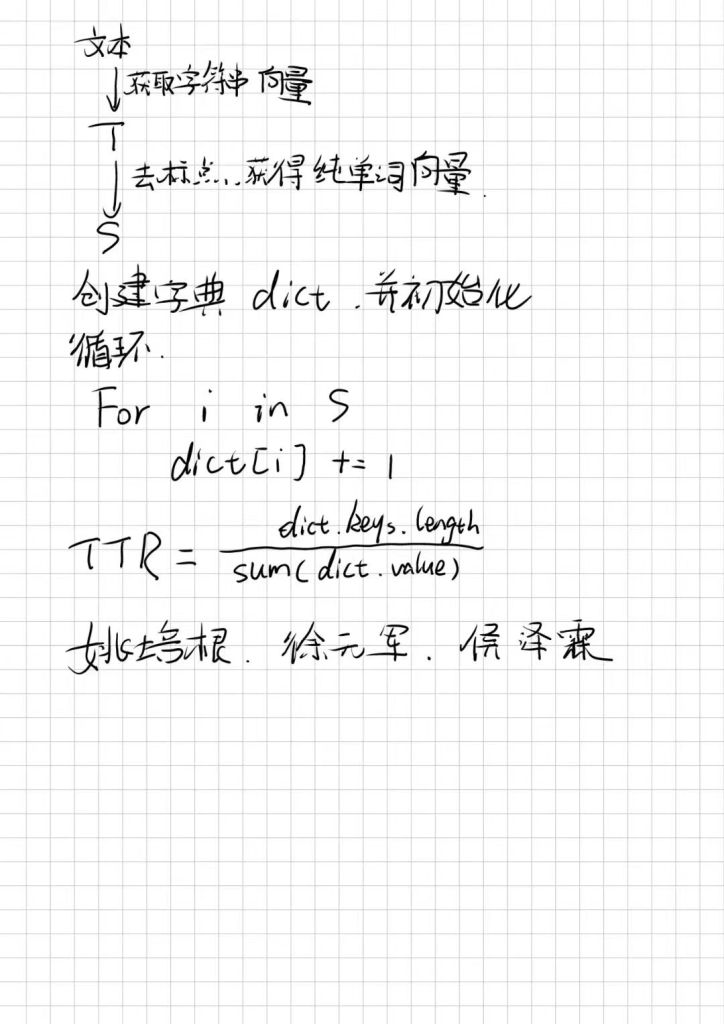 文本
获取字符串向量
T
去标点、获得纯单词向量.
S
创建字典 dict. 并初始化
循环.
For i in S
dict[i] += 1
TTR = dict.keys.length / sum(dict.value)
姚培根. 徐元军. 侯泽霖